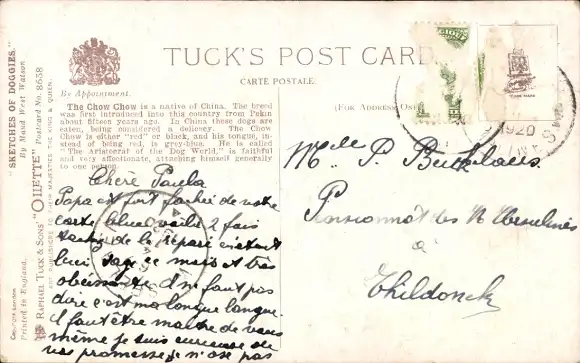 "SKETCHES OF DOGGIES."
By Maud West Watson
RAPHAEL TUCK & SONS' "OILETTE" Postcard No. 8658
ART PUBLISHERS TO THEIR MAJESTIES THE KING & QUEEN.
Printed in England.
TUCK'S POST CARD
CARTE POSTALE.
By Appointment.
(FOR ADDRESS ONLY)
The Chow Chow is a native of China. The breed
was first introduced into this country from Pekin
about fifteen years ago. In China these dogs are
eaten, being considered a delicacy. The Chow
Chow is either "red" or black, and his tongue, in-
stead of being red, is grey-blue. He is called
"The Aristocrat of the Dog World," is faithful
and very affectionate, attaching himself generally
to one person.
1920
Chère Paula
Papa est fort faché de votre
carte bleue voilà 2 fois
de le
sage ce mois et très
obéissante. Il ne faut pas
dire c'est ma longue langue.
Il faut être maître de vous
même je suis curieuse de
vos promesse je n'ose pas
Melle P.
Pensionnat des R Ursulines
à
Thildonck